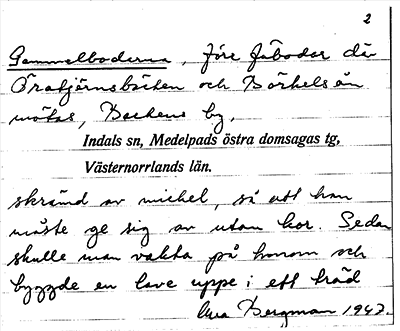 2
Gammelboderna, före fäbodar där
Öratjärnsbäcken och Börkelsån
mötas, Backens by,
Indals sn, Medelpads östra domsagas tg,
Västernorrlands län.
skrämd av michel, så att han
måste ge sig av utan kor. Sedan
skulle man vakta på honom och
byggde en lave uppe i ett träd
Bergman 1942.